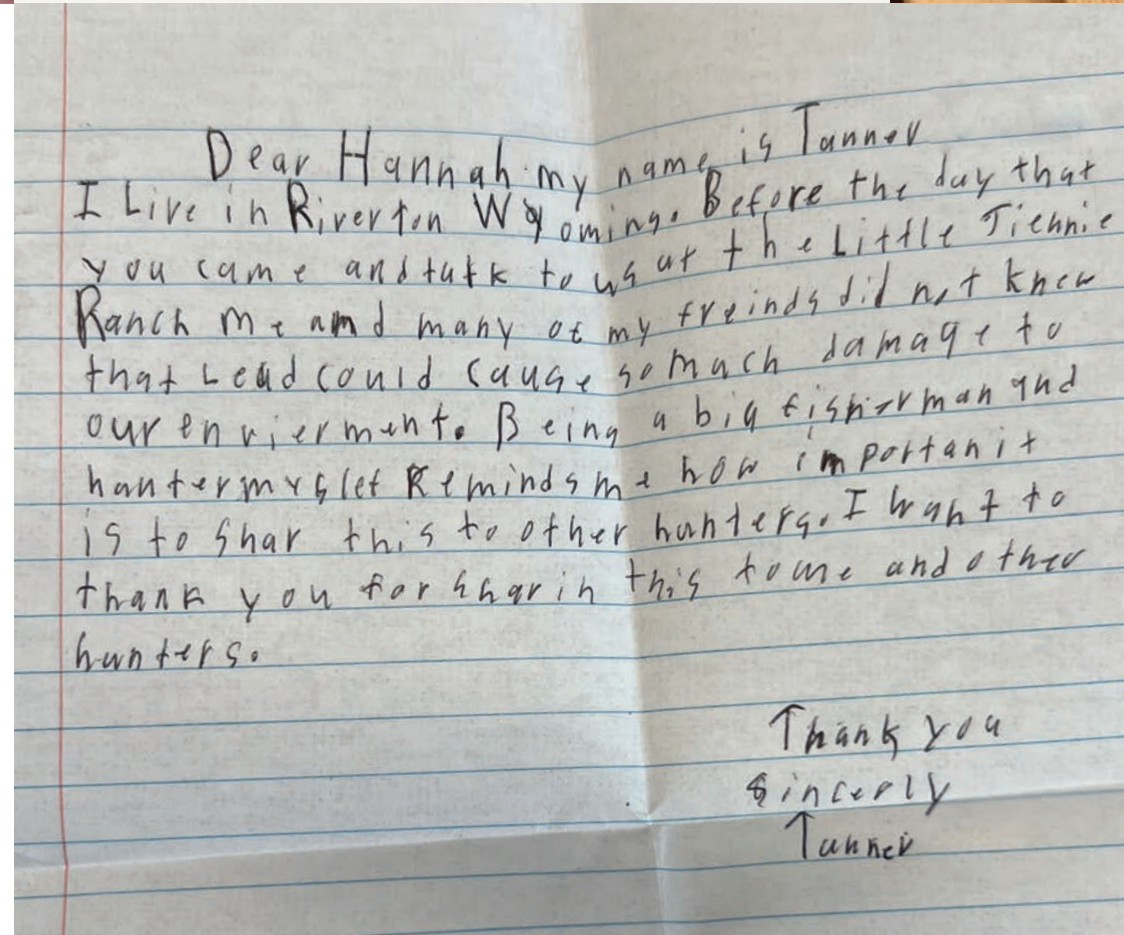 Dear Hannah my name is Tanner
I Live in Riverton Wyoming. Before the day that
you came and talk to us at the Little Jiennie
Ranch me amd many of my freinds did not know
that Lead could cause so much damage to
our envierment. Being a big fisherman and
hunter myslef Reminds me how importan it
is to shar this to other hunters. I want to
thank you for sharin this to me and other
hunters.
Thank you
Sincerly
Tanner